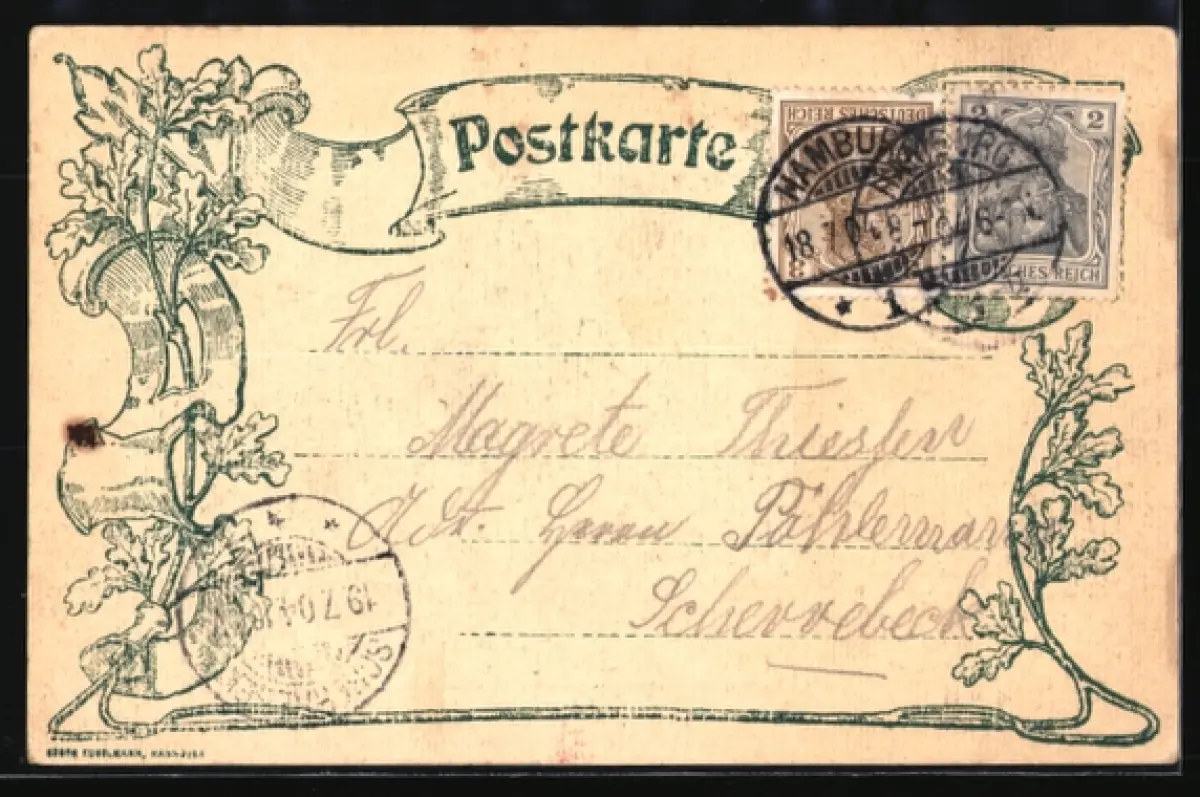 Postkarte
DEUTSCHES REICH
3
2 2
DEUTSCHES REICH
HAMBURG
18.7.04
* 1
HAMBURG
Frl.
Magrete Thiessen
Adr. Herrn Pählemann
Scherrebeck
19.7.04